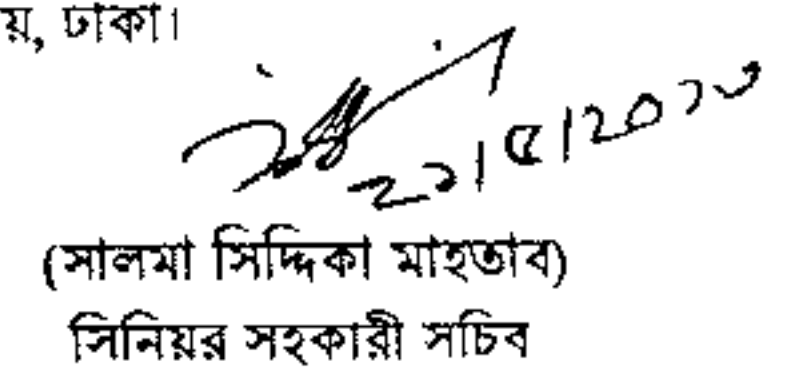 য়, ঢাকা।
(সালমা সিদ্দিকা মাহতাব)
সিনিয়র সহকারী সচিব